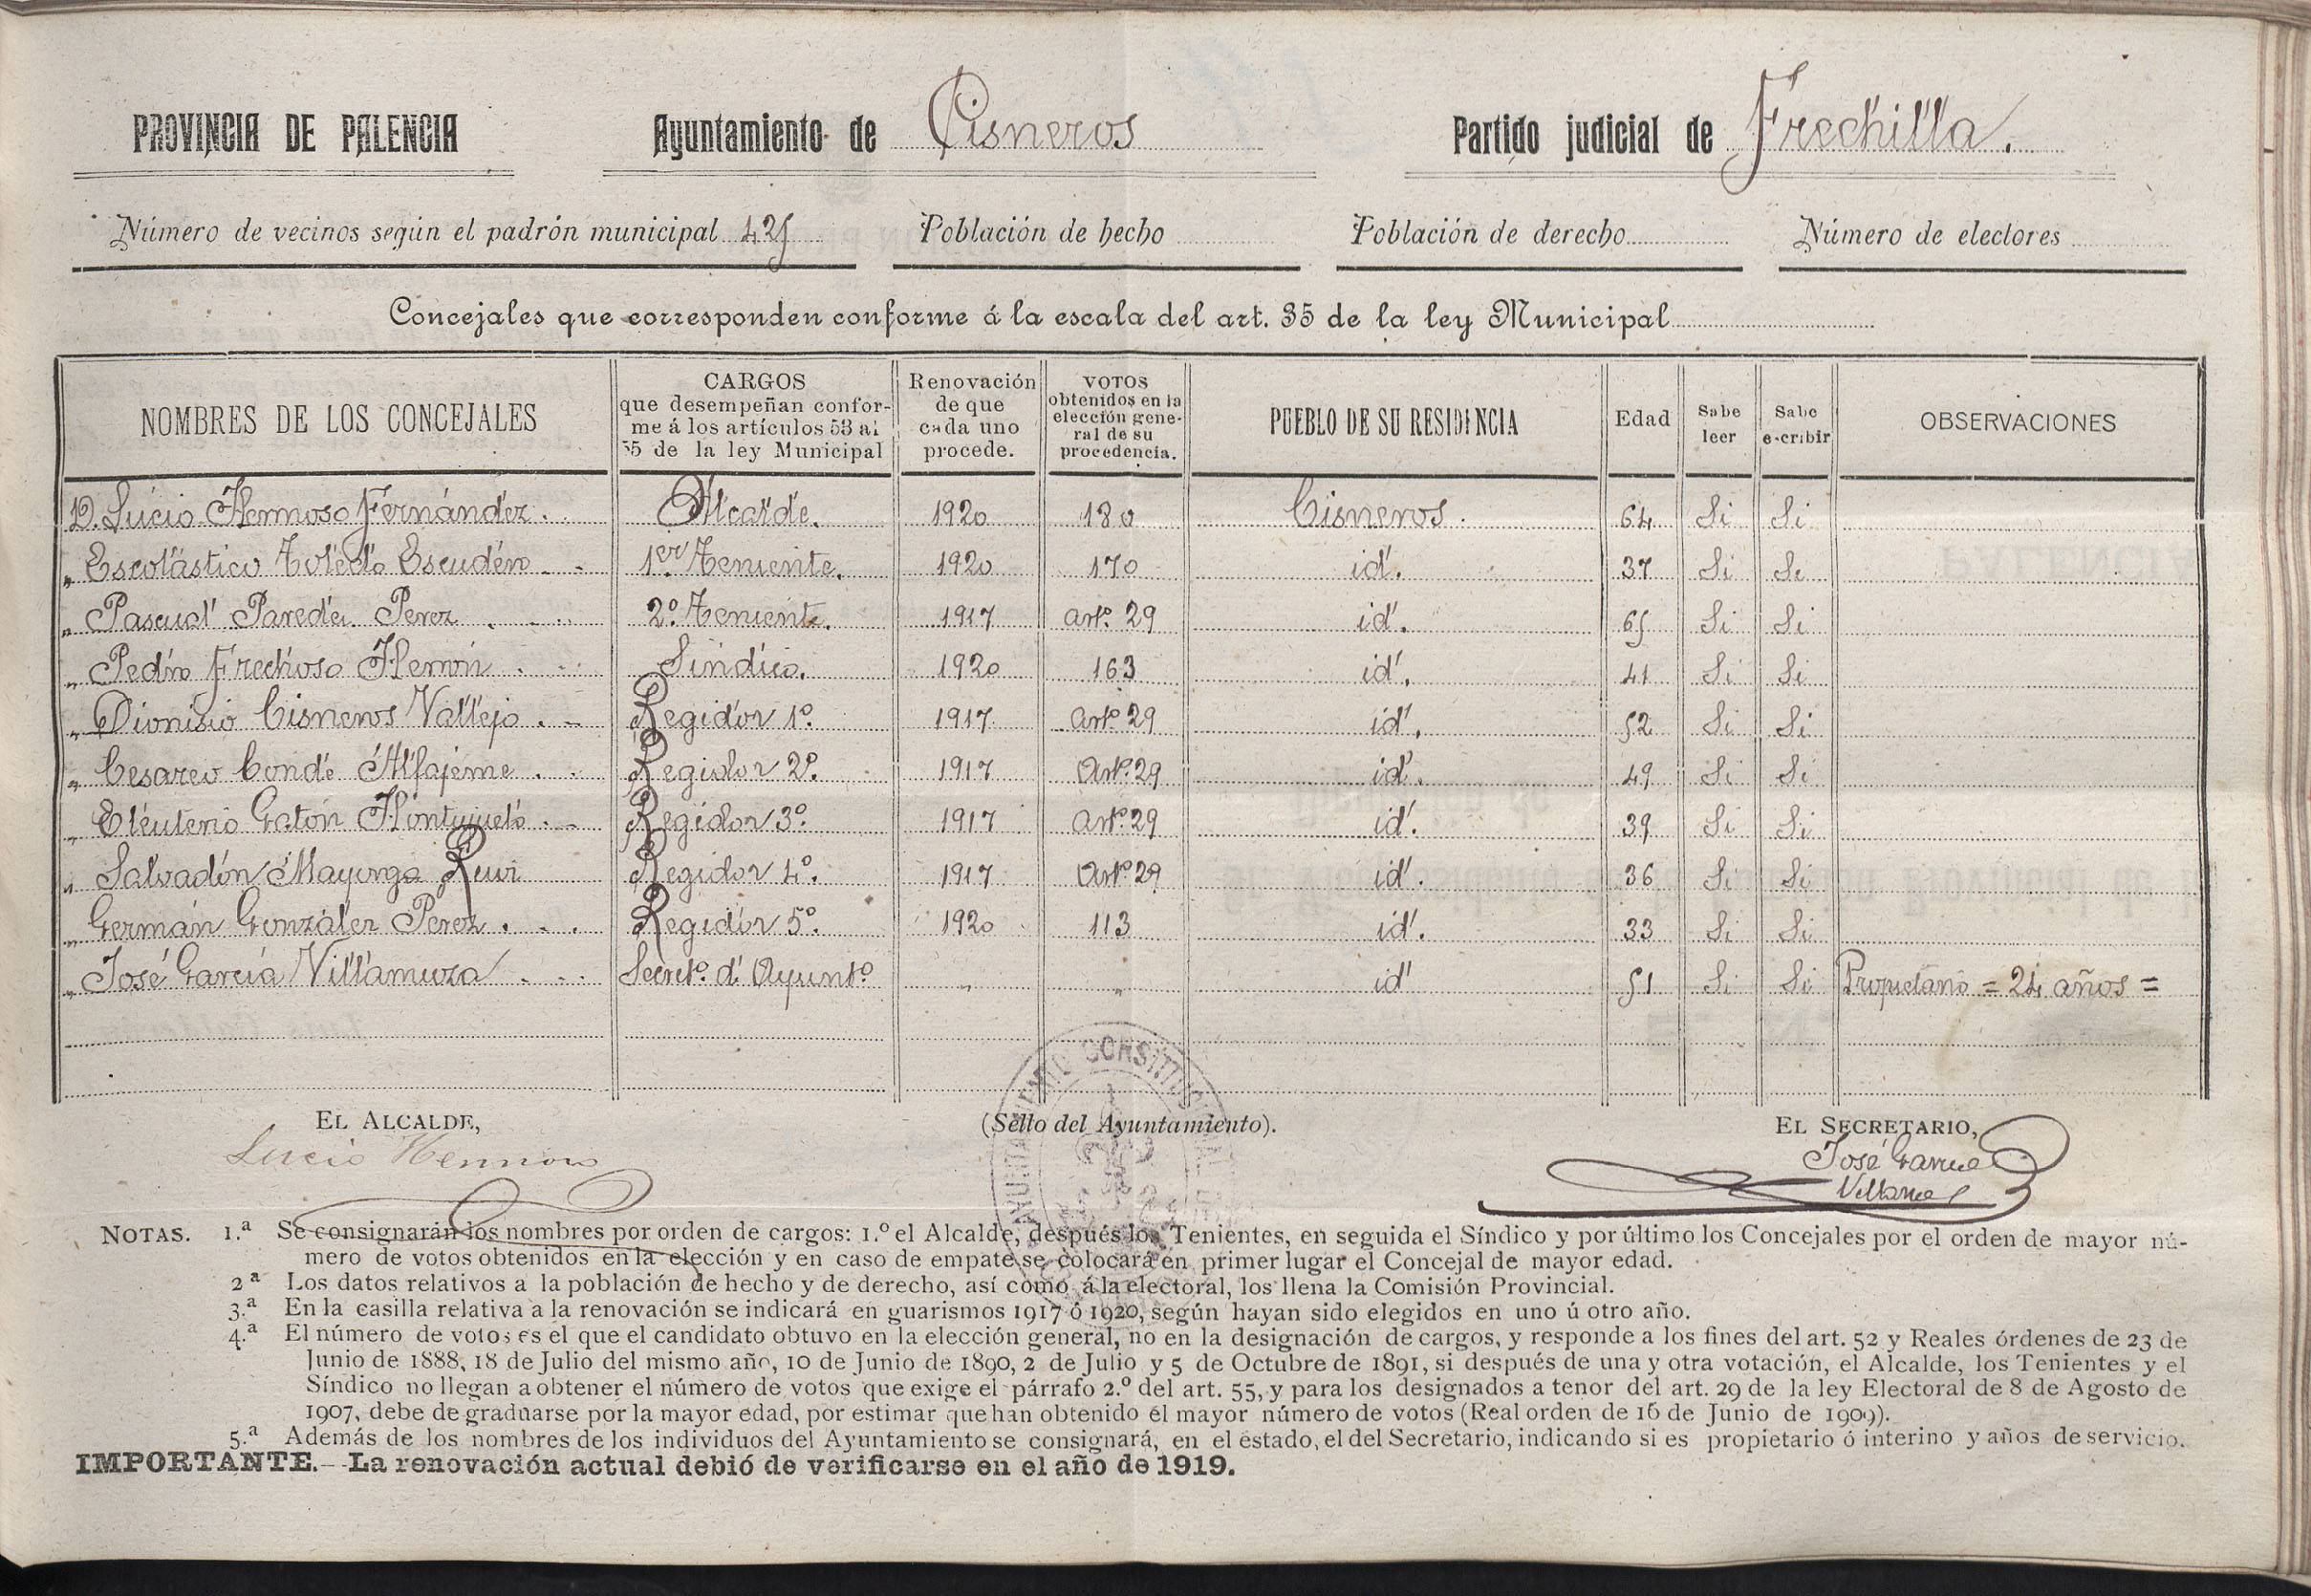 PROVINCIA DE PALENCIA Ayuntamiento de Cisneros Partido judicial de Frechilla.
Número de vecinos según el padrón municipal 425 Población de hecho Población de derecho Número de electores
Concejales que corresponden conforme á la escala del art. 35 de la ley Municipal
NOMBRES DE LOS CONCEJALES CARGOS que desempeñan conforme á los artículos 53 al 55 de la ley Municipal Renovación de que cada uno procede. VOTOS obtenidos en la elección general de su procedencia. PUEBLO DE SU RESIDENCIA Edad Sabe leer Sabe escribir OBSERVACIONES
D. Lucio Hermoso Fernández. Alcalde. 1920 180 Cisneros. 64 Si Si
" Escolástico Toledo Escudero 1er Teniente. 1920 170 id. 37 Si Si
" Pascual Paredes Perez 2º Teniente. 1917 artº 29 id. 65 Si Si
" Pedro Frechoso Síndico. 1920 163 id. 41 Si Si
" Dionisio Cisneros Vallejo Regidor 1º. 1917 artº 29 id. 52 Si Si
" Cesareo Conde Alfajeme Regidor 2º. 1917 Artº 29 id. 49 Si Si
" Eleuterio Gatón Regidor 3º. 1917 artº 29 id. 39 Si Si
" Salvador Mayorga Regidor 4º. 1917 Artº 29 id. 36 Si Si
" Germán González Perez Regidor 5º. 1920 113 id. 33 Si Si
" José García Villamuza Secretº. d. Ayuntº " " id 51 Si Si Propietario = 24 años =
EL ALCALDE, (Sello del Ayuntamiento). EL SECRETARIO,
Lucio Hermoso José Garcia
NOTAS. 1.ª Se consignarán los nombres por orden de cargos: 1.º el Alcalde, después los Tenientes, en seguida el Síndico y por último los Concejales por el orden de mayor nú-
mero de votos obtenidos en la elección y en caso de empate se colocará en primer lugar el Concejal de mayor edad.
2ª Los datos relativos a la población de hecho y de derecho, así como á la electoral, los llena la Comisión Provincial.
3.ª En la casilla relativa a la renovación se indicará en guarismos 1917 ó 1920, según hayan sido elegidos en uno ú otro año.
4.ª El número de votos es el que el candidato obtuvo en la elección general, no en la designación de cargos, y responde a los fines del art. 52 y Reales órdenes de 23 de
Junio de 1888, 18 de Julio del mismo año, 10 de Junio de 1890, 2 de Julio y 5 de Octubre de 1891, si después de una y otra votación, el Alcalde, los Tenientes y el
Síndico no llegan a obtener el número de votos que exige el párrafo 2.º del art. 55, y para los designados a tenor del art. 29 de la ley Electoral de 8 de Agosto de
1907, debe de graduarse por la mayor edad, por estimar que han obtenido el mayor número de votos (Real orden de 16 de Junio de 1909).
5.ª Además de los nombres de los individuos del Ayuntamiento se consignará, en el estado, el del Secretario, indicando si es propietario ó interino y años de servicio.
IMPORTANTE.--La renovación actual debió de verificarse en el año de 1919.